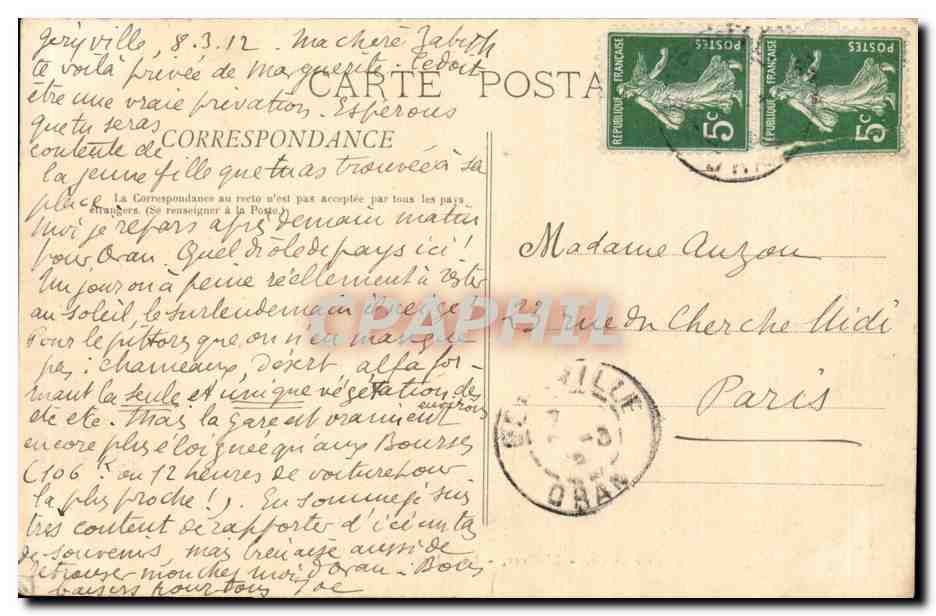 Géryville, 8.3.12. Ma chère Zabeth
te voilà privée de Marguerite. Ce doit
CARTE POSTA
être une vraie privation. Espérons
que tu seras
CORRESPONDANCE
contente de
la jeune fille que tu as trouvée à sa
place.
La Correspondance au recto n'est pas acceptée par tous les pays
étrangers. (Se renseigner à la Poste.)
Moi je repars après demain matin
pour Oran. Quel drôle de pays ici !
Un jour on a peine réellement à rester
au soleil, le surlendemain il neige
Pour le pittoresque on n'en manque
pas : chameaux, désert, alfa for-
mant la seule et unique végétation des
environs
etc etc. Mais la gare est vraiment
encore plus éloignée qu'aux Bourses
(106 k ou 12 heures de voiture pour
la plus proche !). En somme je suis
très content de rapporter d'ici un tas
de souvenirs, mais bien aise aussi de
retrouver mon chez moi d'Oran. Bons
baisers pour tous
CPAPHIL
RÉPUBLIQUE FRANÇAISE
POSTES
5c
RÉPUBLIQUE FRANÇAISE
POSTES
5c
Madame Auzou
23 rue du Cherche Midi
Paris
ORAN